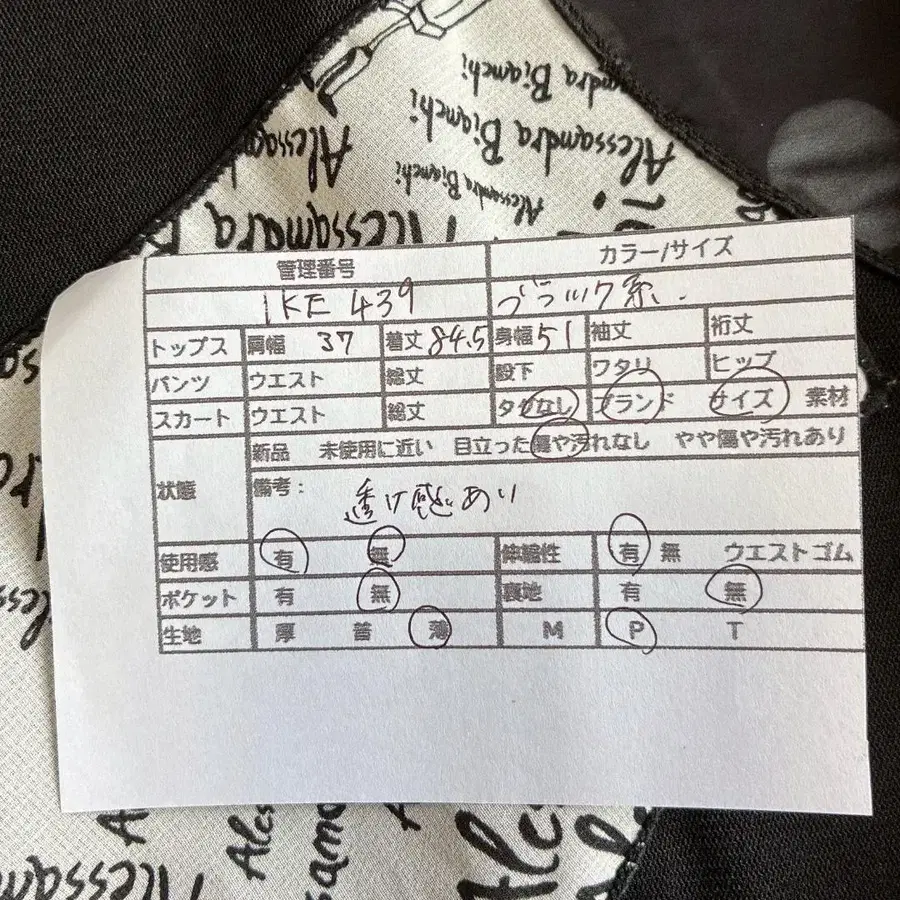 Alessandra Bianchi
Alessandra Bianchi
Alessandra Bianchi
管理番号 カラー/サイズ
IKE 439 ブラック系.
トップス 肩幅 37 着丈 84.5 身幅 51 袖丈 裄丈
パンツ ウエスト 総丈 股下 ワタリ ヒップ
スカート ウエスト 総丈 タグなし ブランド サイズ 素材
状態 新品 未使用に近い 目立った傷や汚れなし やや傷や汚れあり
備考: 透け感あり
使用感 有 無 伸縮性 有 無 ウエストゴム
ポケット 有 無 裏地 有 無
生地 厚 普 薄 M P T